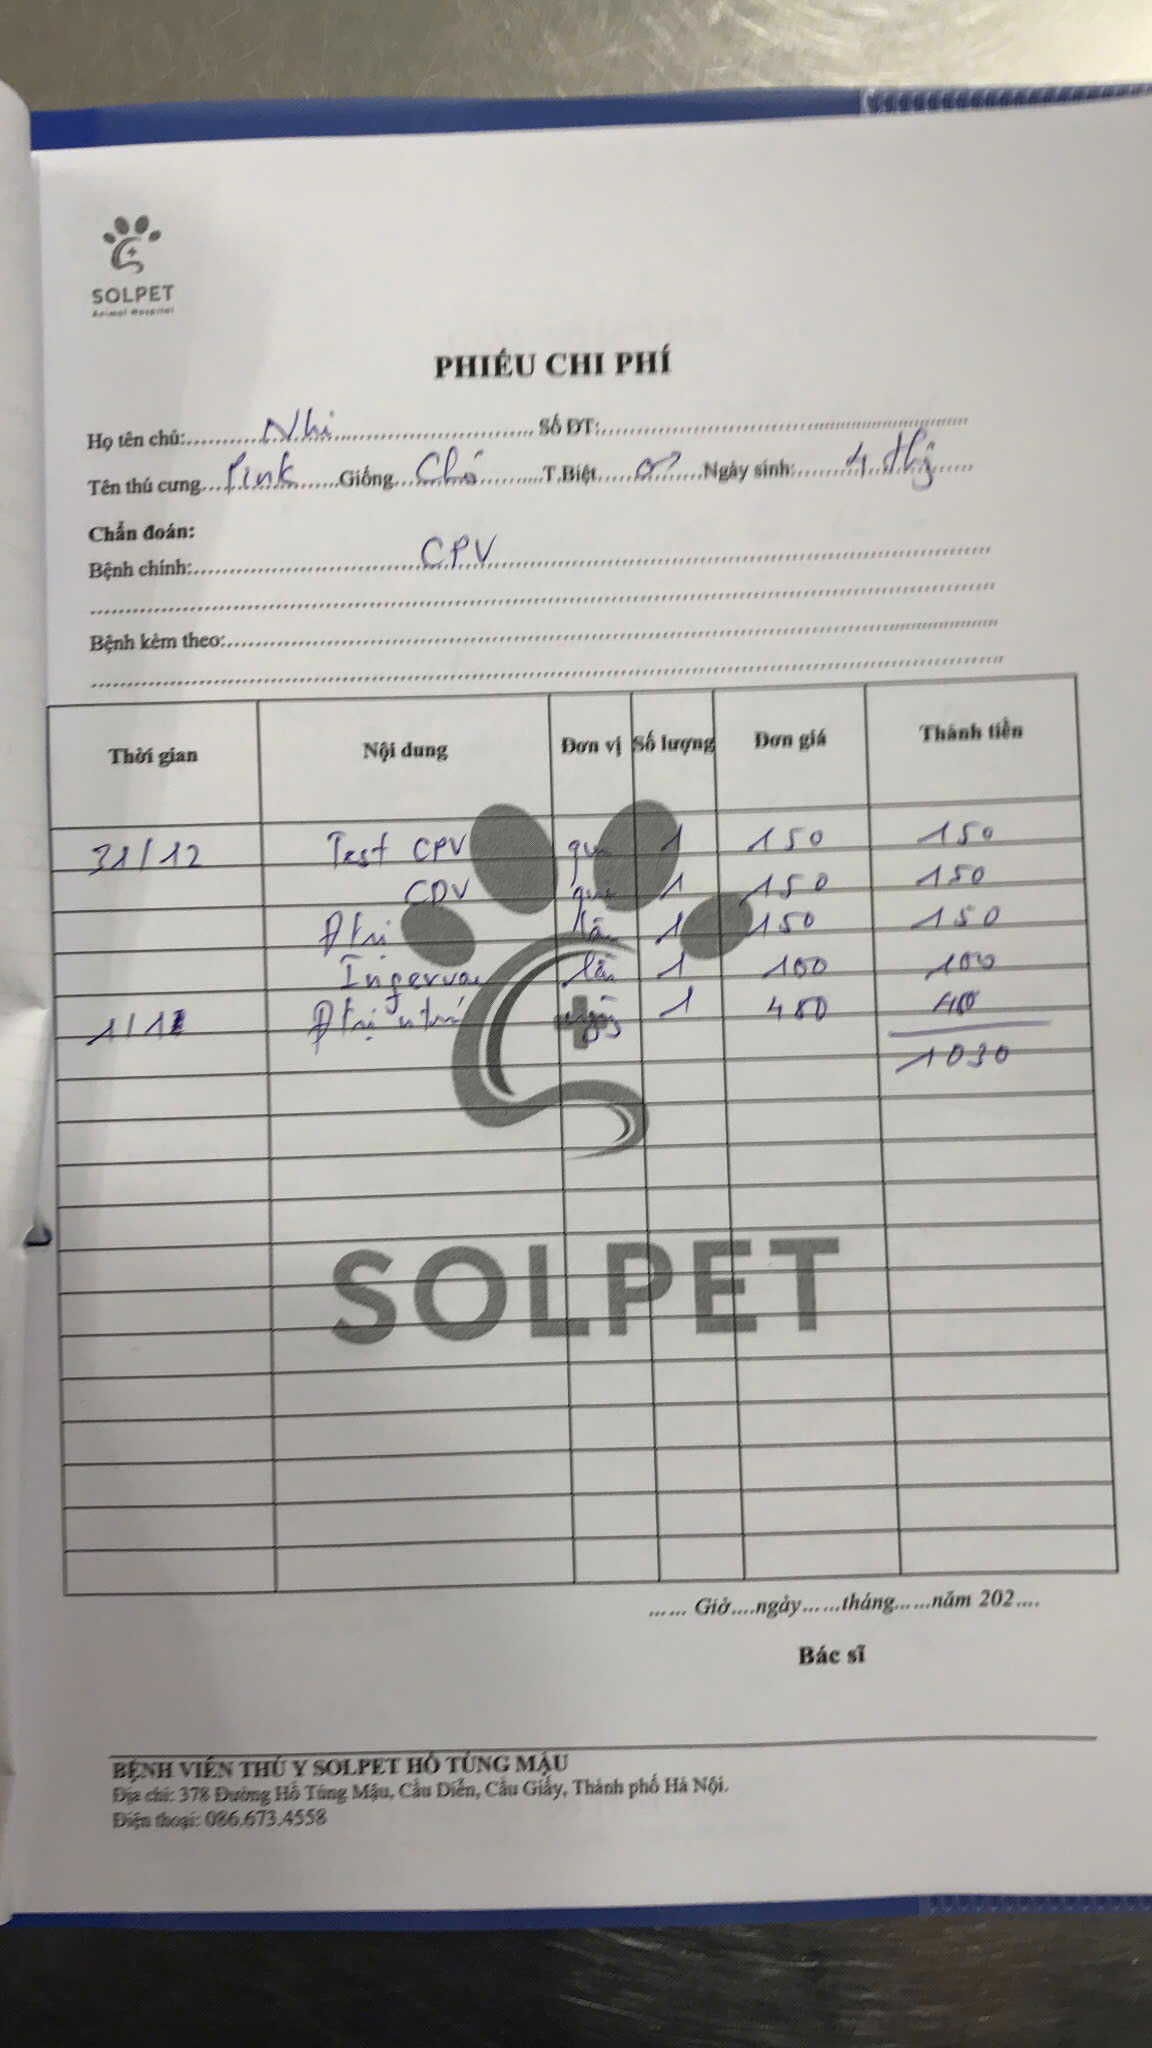 SOLPET
Animal Hospital
PHIẾU CHI PHÍ
Họ tên chủ: Nhi Số ĐT:
Tên thú cưng Pink Giống Chó T.Biệt Ngày sinh: 4 thg
Chẩn đoán:
Bệnh chính: CPV
Bệnh kèm theo:
Thời gian Nội dung Đơn vị Số lượng Đơn giá Thành tiền
31/12 Test CPV 1 150 150
CDV 1 150 150
Đtrị lần 1 150 150
lần 1 100 100
1/1 Đtrị n trú ngày 1 480 480
1030
SOLPET
...... Giờ....ngày......tháng......năm 202....
Bác sĩ
BỆNH VIỆN THÚ Y SOLPET HỒ TÙNG MẬU
Địa chỉ: 378 Đường Hồ Tùng Mậu, Cầu Diễn, Cầu Giấy, Thành phố Hà Nội.
Điện thoại: 086.673.4558